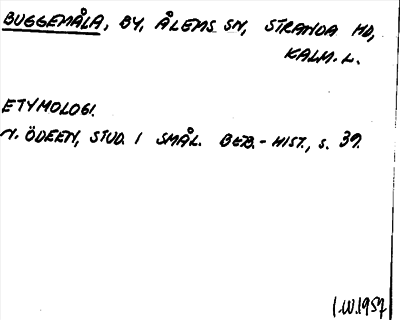 BUGGEMÅLA, BY, ÅLEMS SN, STRANDA HD,
KALM. L.
ETYMOLOGI.
N. ÖDEEN, STUD. I SMÅL. BEB.-HIST., S. 39.
1957